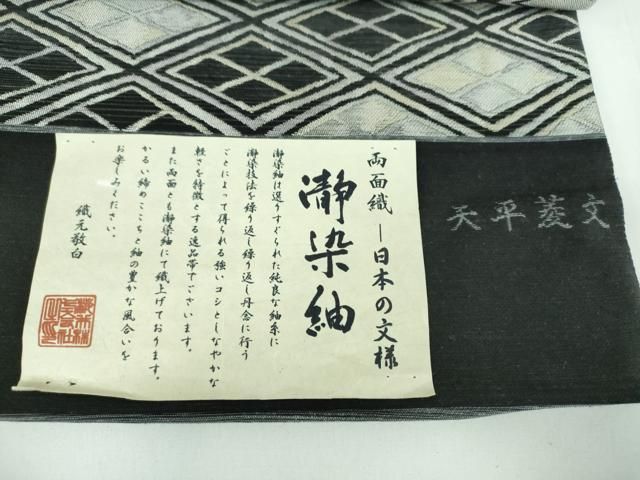 両面織―日本の文様
瀞染紬
瀞染紬は選りすぐられた純良な紬糸に
瀞染技法を繰り返し繰り返し丹念に行う
ことによって得られる強いコシとしなやかな
軽さを特徴とする逸品帯でございます。
また両面とも瀞染紬にて織上げております。
かるい締めごこちと紬の豊かな風合いを
お楽しみください。
織元敬白
天平菱文